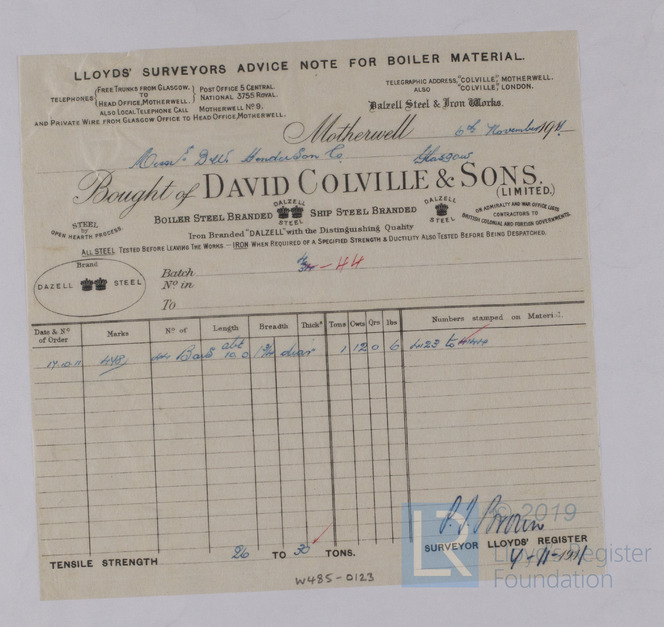 LLOYDS' SURVEYORS ADVICE NOTE FOR BOILER MATERIAL.
TELEPHONES { FREE TRUNKS FROM GLASGOW. TO HEAD OFFICE, MOTHERWELL. } POST OFFICE 5 CENTRAL. NATIONAL 3755 ROYAL.
ALSO LOCAL TELEPHONE CALL MOTHERWELL Nº 9.
AND PRIVATE WIRE FROM GLASGOW OFFICE TO HEAD OFFICE, MOTHERWELL.
TELEGRAPHIC ADDRESS, "COLVILLE," MOTHERWELL.
ALSO "COLVILLE," LONDON.
Dalzell Steel & Iron Works.
Motherwell 6th November 1911
Messrs D & W Henderson Co. Glasgow
Bought of DAVID COLVILLE & SONS.
(LIMITED.)
STEEL
BY
OPEN HEARTH PROCESS.
BOILER STEEL BRANDED DALZELL STEEL SHIP STEEL BRANDED DALZELL STEEL
ON ADMIRALTY AND WAR OFFICE LISTS
CONTRACTORS TO
BRITISH COLONIAL AND FOREIGN GOVERNMENTS.
Iron Branded "DALZELL" with the Distinguishing Quality
ALL STEEL TESTED BEFORE LEAVING THE WORKS. — IRON WHEN REQUIRED OF A SPECIFIED STRENGTH & DUCTILITY ALSO TESTED BEFORE BEING DESPATCHED.
Brand
DALZELL STEEL
Batch
Nº in
44
To
Date & Nº of Order Marks Nº of Length Breadth Thickˢ Tons Cwts Qrs lbs Numbers stamped on Material.
17.10.11 448 44 Bars abt 10.0 1¾ diar 1 12 0 6 4423 to 4444
TENSILE STRENGTH 26 TO 30 TONS.
P. J. Brown
SURVEYOR LLOYDS' REGISTER
7-11-1911
W485-0123
© 2019
LR
Lloyd's Register
Foundation